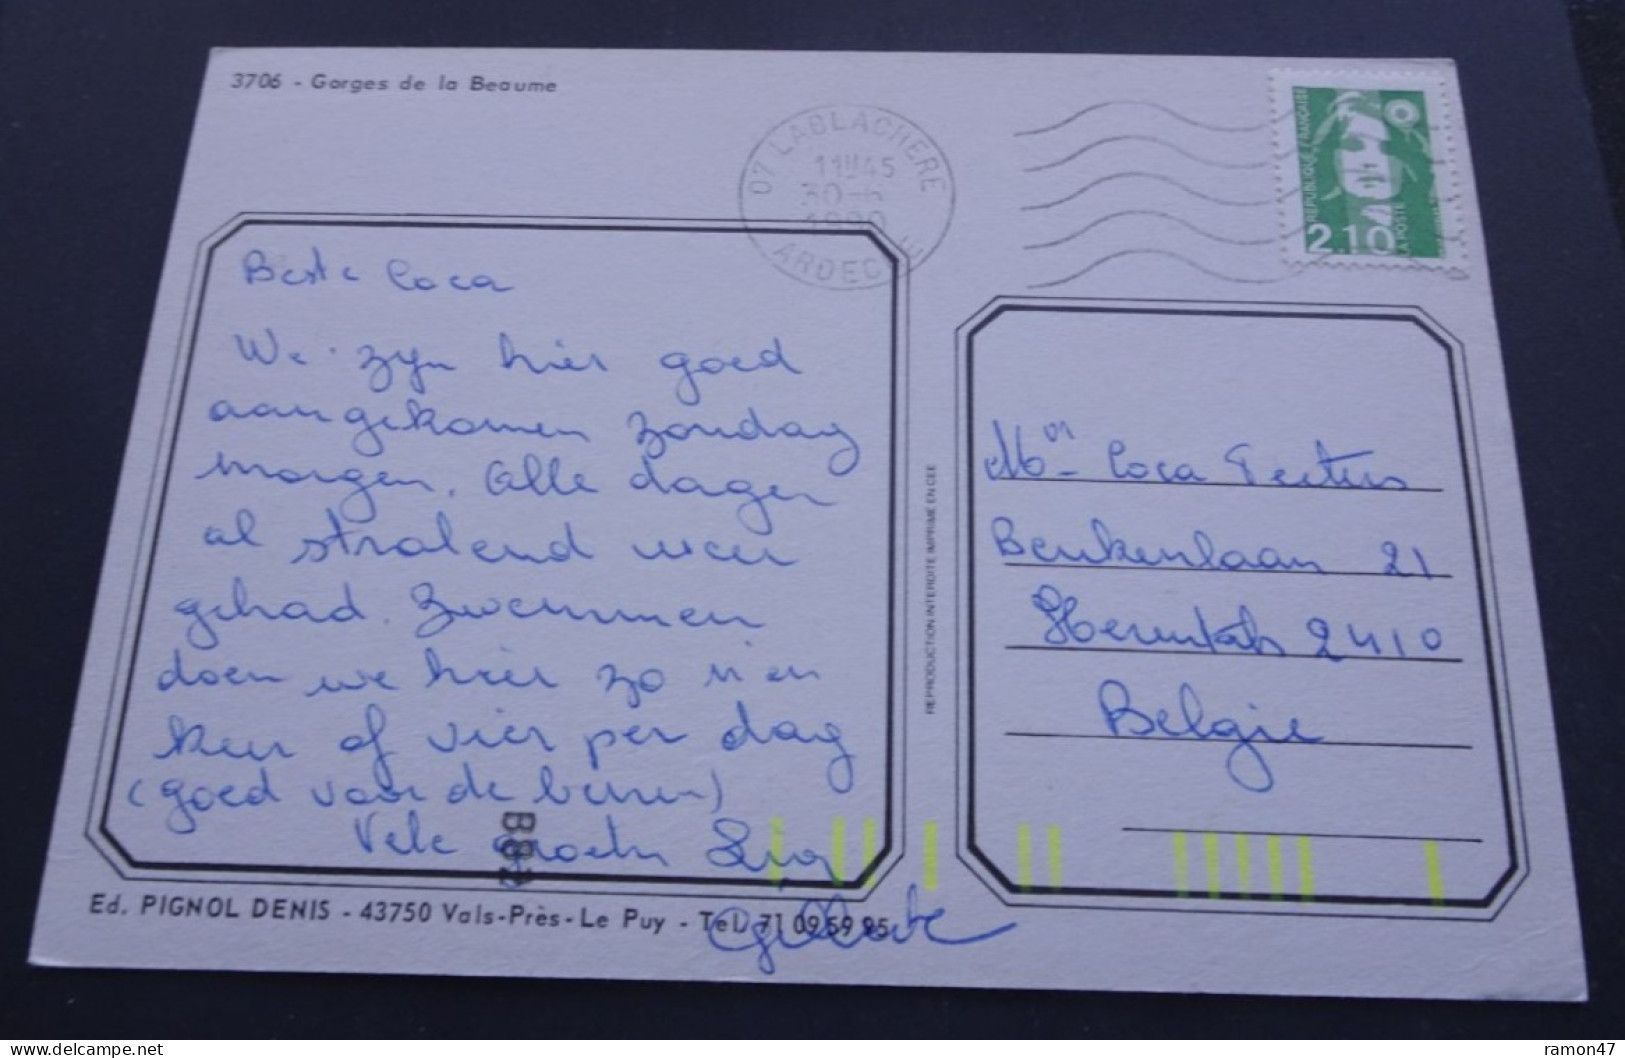 3706 - Gorges de la Beaume
07 LABLACHERE
11H45
30-6
1990
ARDECHE
REPUBLIQUE FRANÇAISE
2.10
LA POSTE
Beste Coca
We zyn hier goed
aangekomen zondag
morgen. Alle dagen
al stralend weer
gehad. Zwemmen
doen we hier zo n'en
keer of vier per dag
(goed voor de benen)
Vele groeten
REPRODUCTION INTERDITE IMPRIME EN CEE
Coca Peeters
Beukenlaan 21
Herentals 2410
Belgie
Ed. PIGNOL DENIS - 43750 Vals-Près-Le Puy - Tel. 71 09 59 95
ramon47